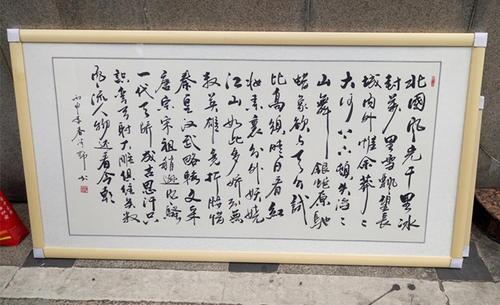 北國风光千里冰
封萬里雪飄望長
城内外惟余莽〻
大河上下頓失滔〻
山舞銀蛇原馳
蜡象欲与天公試
比高須晴日看紅
妆素裹分外妖娆
江山如此多娇引無
数英雄竞折腰惜
秦皇漢武略输文采
唐宗宋祖稍逊风騷
一代天骄成吉思汗只
識弯弓射大雕俱往矣数
风流人物還看今朝
丙申年春 书